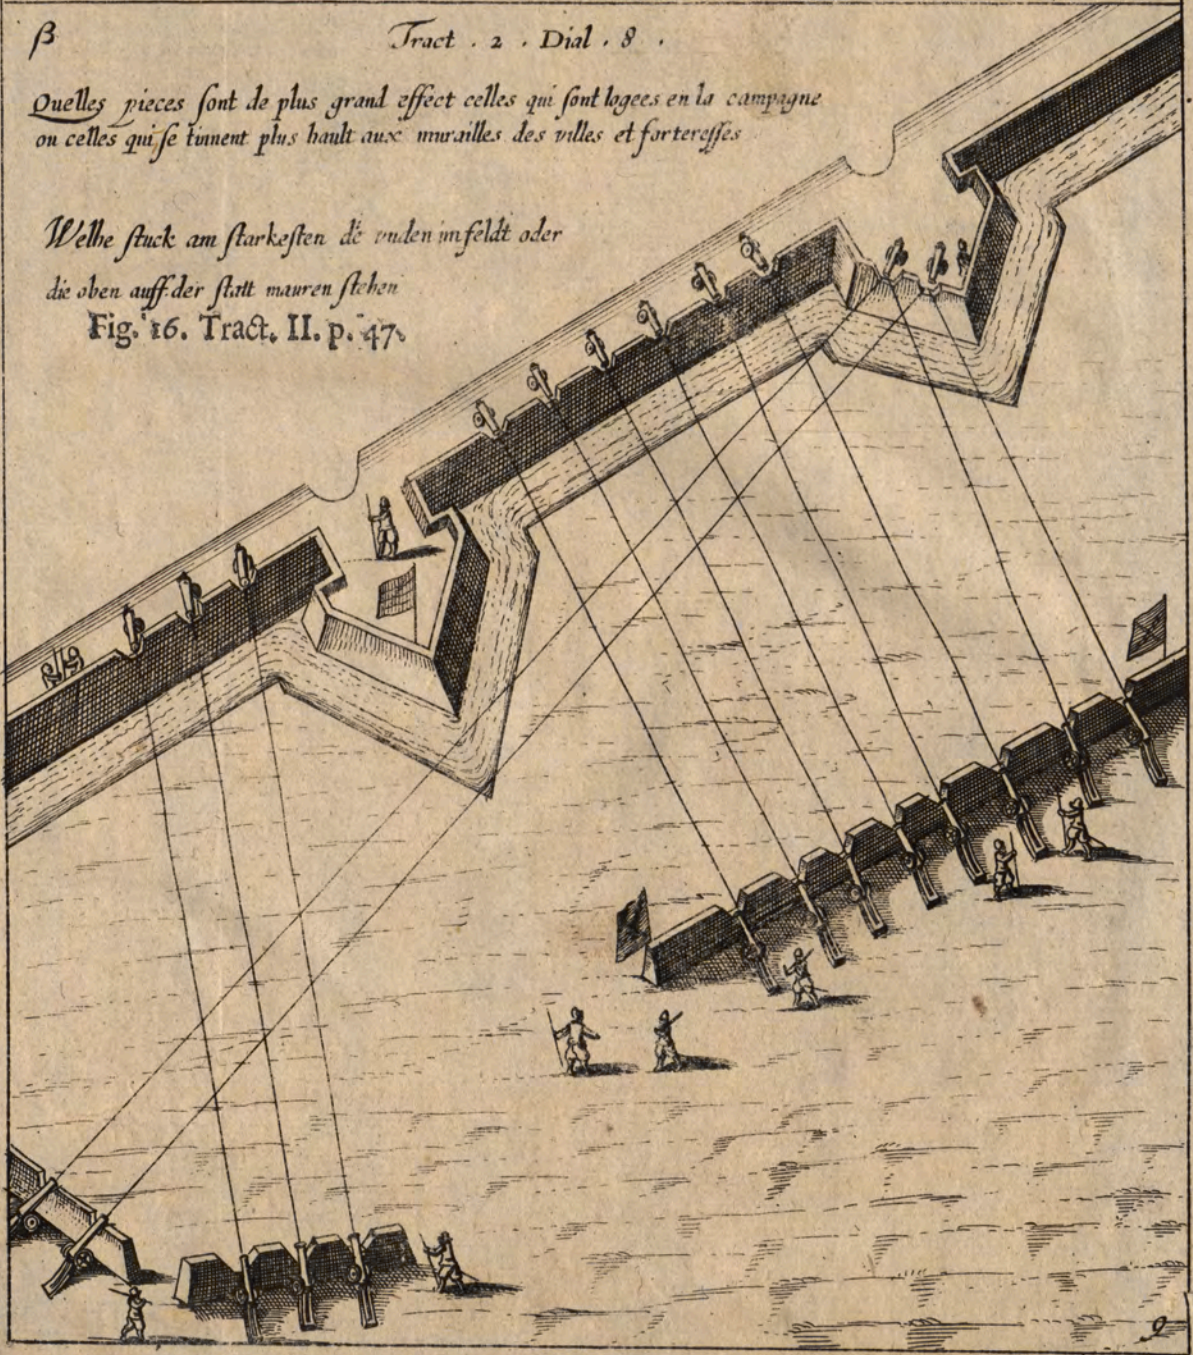 β
Tract . 2 . Dial . 8 .
Quelles pieces sont de plus grand effect celles qui sont logees en la campagne
ou celles qui se tiinent plus hault aux murailles des villes et forteresses
Welhe stuck am starkesten dē unden im feldt oder
die oben auff der statt mauren stehen
Fig. 16. Tract. II. p. 47.
9